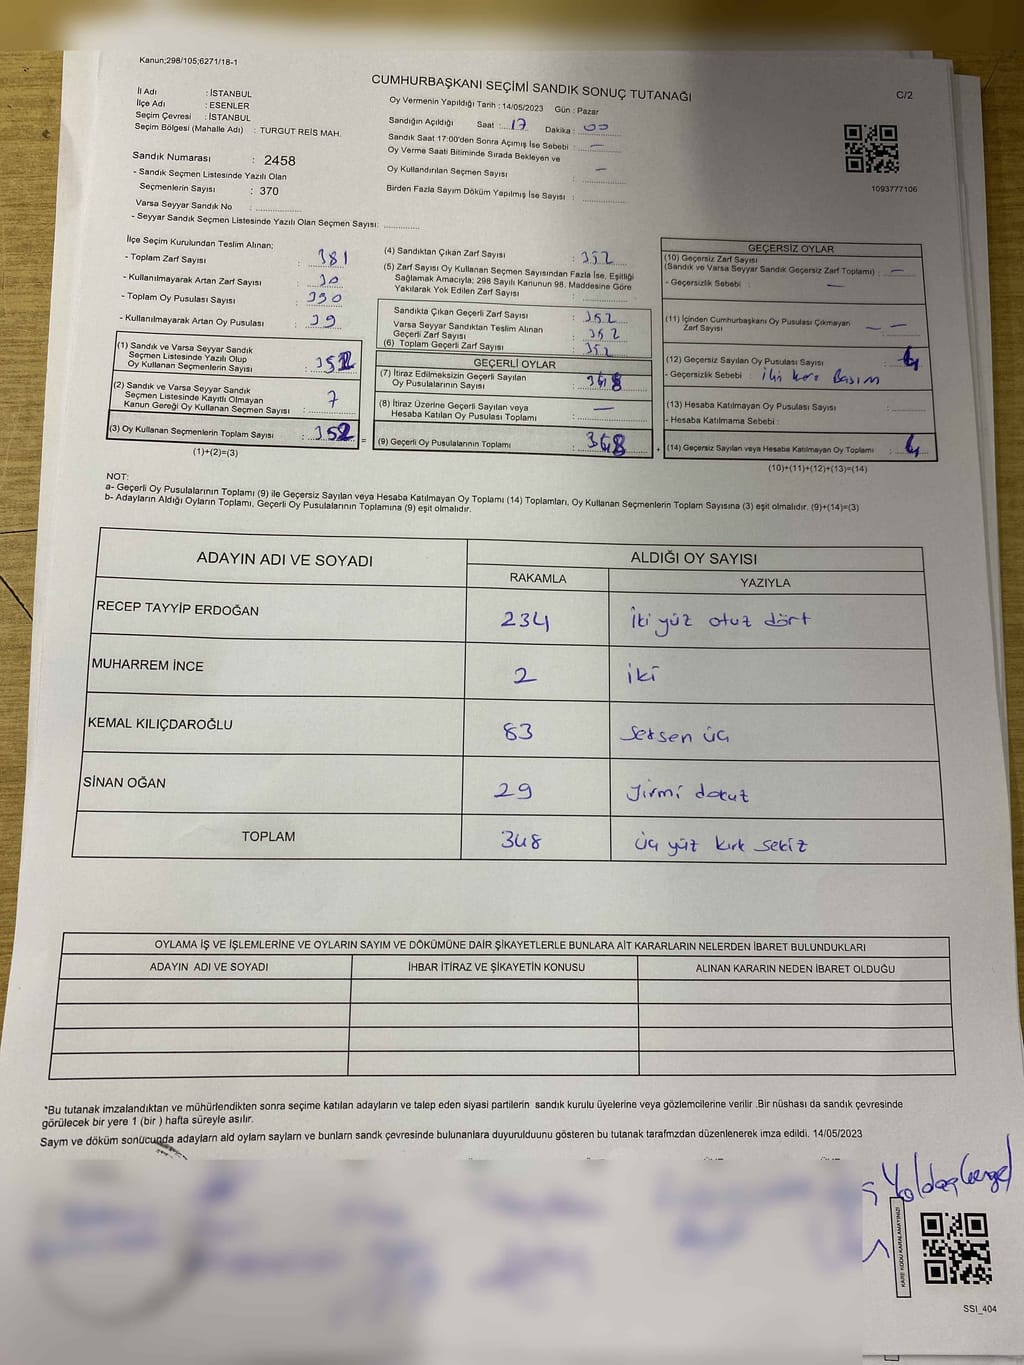 Kanun;298/105;6271/18-1
CUMHURBAŞKANI SEÇİMİ SANDIK SONUÇ TUTANAĞI
C/2
İl Adı : İSTANBUL
İlçe Adı : ESENLER
Seçim Çevresi : İSTANBUL
Seçim Bölgesi (Mahalle Adı) : TURGUT REİS MAH.
Sandık Numarası : 2458
- Sandık Seçmen Listesinde Yazılı Olan
Seçmenlerin Sayısı : 370
Varsa Seyyar Sandık No : ..............
- Seyyar Sandık Seçmen Listesinde Yazılı Olan Seçmen Sayısı: ..............
Oy Vermenin Yapıldığı Tarih : 14/05/2023 Gün : Pazar
Sandığın Açıldığı Saat : 17 Dakika : 00
Sandık Saat 17:00'den Sonra Açımış İse Sebebi : —
Oy Verme Saati Bitiminde Sırada Bekleyen ve
Oy Kullandırılan Seçmen Sayısı : —
Birden Fazla Sayım Döküm Yapılmış İse Sayısı : ..............
1093777106
İlçe Seçim Kurulundan Teslim Alınan;
- Toplam Zarf Sayısı : 381
- Kullanılmayarak Artan Zarf Sayısı :
- Toplam Oy Pusulası Sayısı :
- Kullanılmayarak Artan Oy Pusulası :
(1) Sandık ve Varsa Seyyar Sandık
Seçmen Listesinde Yazılı Olup
Oy Kullanan Seçmenlerin Sayısı :
(2) Sandık ve Varsa Seyyar Sandık
Seçmen Listesinde Kayıtlı Olmayan
Kanun Gereği Oy Kullanan Seçmen Sayısı : 7
(3) Oy Kullanan Seçmenlerin Toplam Sayısı : 352
(1)+(2)=(3)
=
(4) Sandıktan Çıkan Zarf Sayısı : 352
(5) Zarf Sayısı Oy Kullanan Seçmen Sayısından Fazla İse, Eşitliği
Sağlamak Amacıyla; 298 Sayılı Kanunun 98. Maddesine Göre
Yakılarak Yok Edilen Zarf Sayısı : ..............
Sandıkta Çıkan Geçerli Zarf Sayısı : 352
Varsa Seyyar Sandıktan Teslim Alınan
Geçerli Zarf Sayısı : 352
(6) Toplam Geçerli Zarf Sayısı : 352
GEÇERLİ OYLAR
(7) İtiraz Edilmeksizin Geçerli Sayılan
Oy Pusulalarının Sayısı : 348
(8) İtiraz Üzerine Geçerli Sayılan veya
Hesaba Katılan Oy Pusulası Toplamı : —
(9) Geçerli Oy Pusulalarının Toplamı : 348
+
GEÇERSİZ OYLAR
(10) Geçersiz Zarf Sayısı
(Sandık ve Varsa Seyyar Sandık Geçersiz Zarf Toplamı) : —
- Geçersizlik Sebebi : —
(11) İçinden Cumhurbaşkanı Oy Pusulası Çıkmayan
Zarf Sayısı : — —
(12) Geçersiz Sayılan Oy Pusulası Sayısı : 4
- Geçersizlik Sebebi : iki kere Basım
(13) Hesaba Katılmayan Oy Pusulası Sayısı : ..............
- Hesaba Katılmama Sebebi :
(14) Geçersiz Sayılan veya Hesaba Katılmayan Oy Toplamı : 4
(10)+(11)+(12)+(13)=(14)
NOT:
a- Geçerli Oy Pusulalarının Toplamı (9) ile Geçersiz Sayılan veya Hesaba Katılmayan Oy Toplamı (14) Toplamları, Oy Kullanan Seçmenlerin Toplam Sayısına (3) eşit olmalıdır. (9)+(14)=(3)
b- Adayların Aldığı Oyların Toplamı, Geçerli Oy Pusulalarının Toplamına (9) eşit olmalıdır.
ADAYIN ADI VE SOYADI ALDIĞI OY SAYISI
RAKAMLA YAZIYLA
RECEP TAYYİP ERDOĞAN 234 iki yüz otuz dört
MUHARREM İNCE 2 iki
KEMAL KILIÇDAROĞLU 83 seksen üç
SİNAN OĞAN 29 yirmi dokuz
TOPLAM 348 üç yüz kırk sekiz
OYLAMA İŞ VE İŞLEMLERİNE VE OYLARIN SAYIM VE DÖKÜMÜNE DAİR ŞİKAYETLERLE BUNLARA AİT KARARLARIN NELERDEN İBARET BULUNDUKLARI
ADAYIN ADI VE SOYADI İHBAR İTİRAZ VE ŞİKAYETİN KONUSU ALINAN KARARIN NEDEN İBARET OLDUĞU
*Bu tutanak imzalandıktan ve mühürlendikten sonra seçime katılan adayların ve talep eden siyasi partilerin sandık kurulu üyelerine veya gözlemcilerine verilir .Bir nüshası da sandık çevresinde
görülecek bir yere 1 (bir ) hafta süreyle asılır.
Saym ve döküm sonucunda adaylarn ald oylarn saylarn ve bunlarn sandk çevresinde bulunanlara duyurulduunu gösteren bu tutanak tarafmzdan düzenlenerek imza edildi. 14/05/2023
KARE KODU KARALAMAYINIZ!
SSI_404